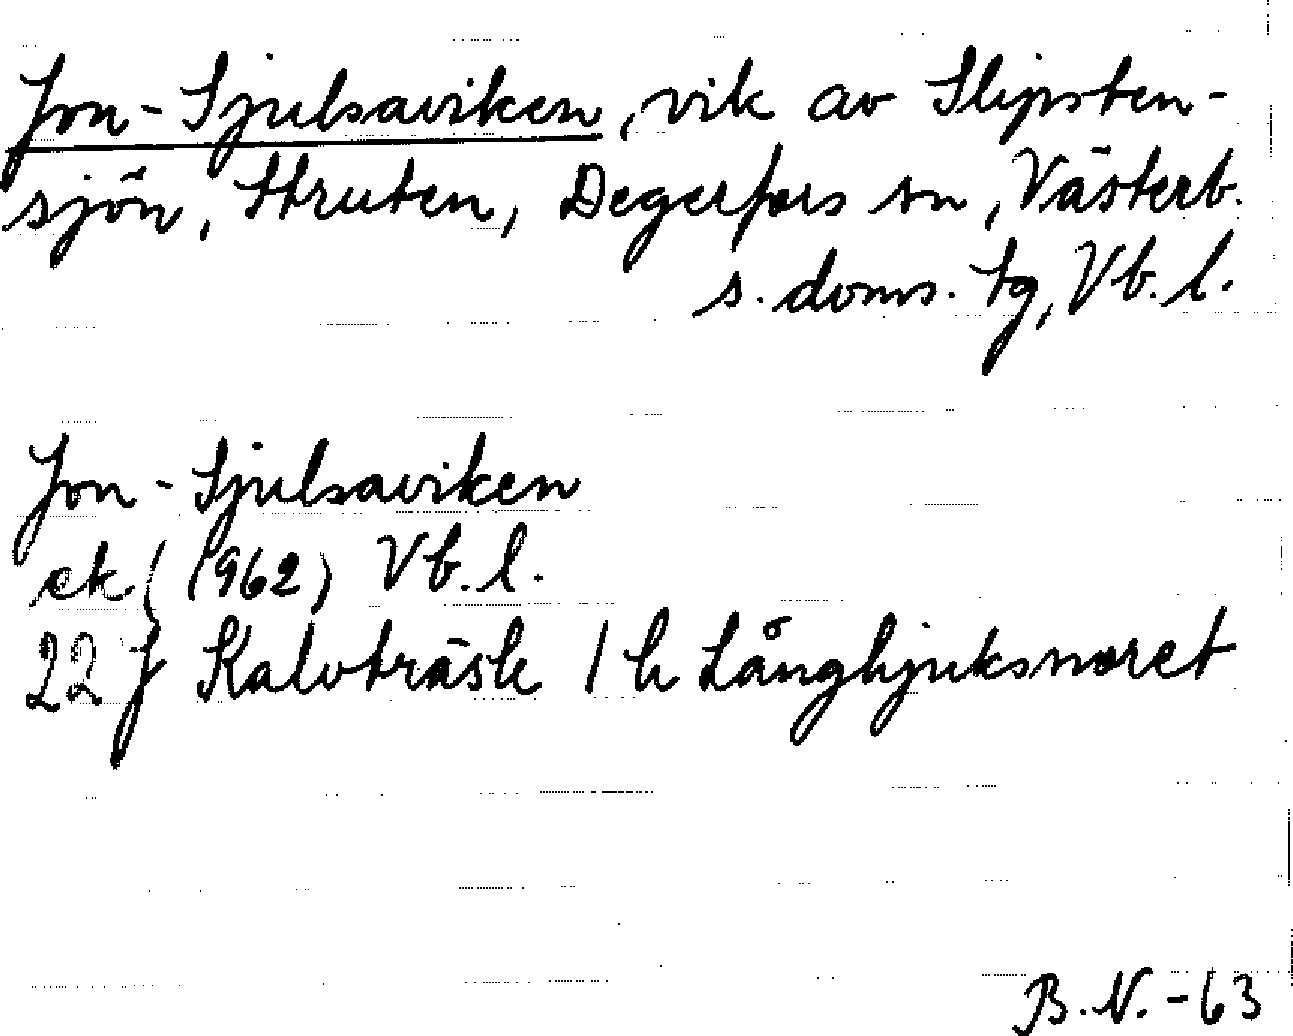 Jon-Sjulsaviken, vik av Slipsten-
sjön, Struten, Degerfors sn, Västerb.
s. doms. tg, Vb. l.
Jon-Sjulsaviken
ek. (1962) Vb. l.
22 J Kalvträsk 1 h Långhjuksnoret
B. N. -63